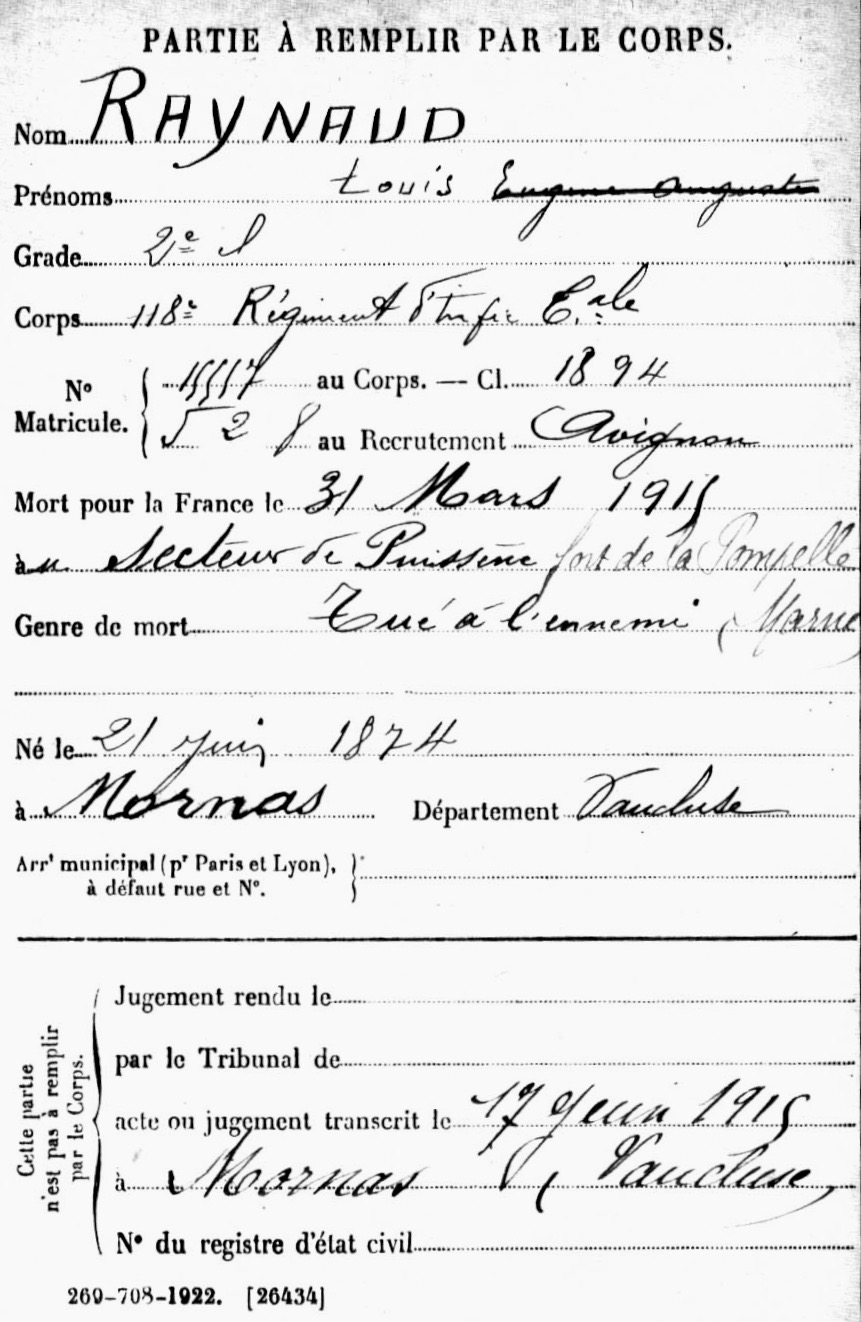 PARTIE À REMPLIR PAR LE CORPS.
Nom RAYNAUD
Prénoms Louis Eugène Auguste
Grade 2e
Corps 118e Régiment d'Infie Eale
N° Matricule. 15557 au Corps. — Cl. 1894
528 au Recrutement Avignon
Mort pour la France le 31 Mars 1915
au Secteur de fort de la Pompelle
Genre de mort Tué à l'ennemi (Marne)
Né le 21 Juin 1874
à Mornas Département Vaucluse
Arrt municipal (pr Paris et Lyon),
à défaut rue et N°.
Cette partie n'est pas à remplir par le Corps.
Jugement rendu le
par le Tribunal de
acte ou jugement transcrit le 17 Juin 1915
à Mornas (Vaucluse)
N° du registre d'état civil
269-708-1922. [26434]